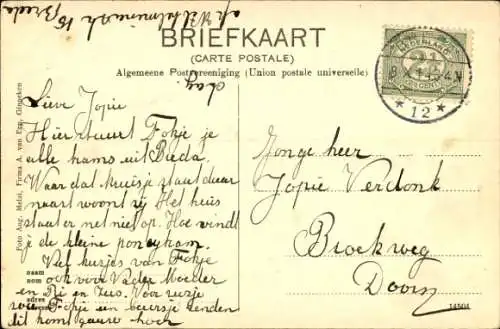 BRIEFKAART
(CARTE POSTALE)
Algemeene Postvereeniging (Union postale universelle)
NEDERLAND
2½
CENT
* 12 *
Foto Aug. Melis, Firma A. van Erp, Ginneken
Breda
Lieve Jopie
Hier stuurt Fokje je
alle hams uit Breda.
Waar dat kruisje staat daar
naast woont zij Het huis
staat er net niet op. Hoe vindt
je de kleine poneykam.
Veel kusjes van Fokje
ook voor Vader Moeder
en en Zus. Voor
Fokje een beursje zenden
dit komt gauw hoor
naam
nom
adres
Jonge heer
Jopie Verdonk
Broekweg
Doorn
14504